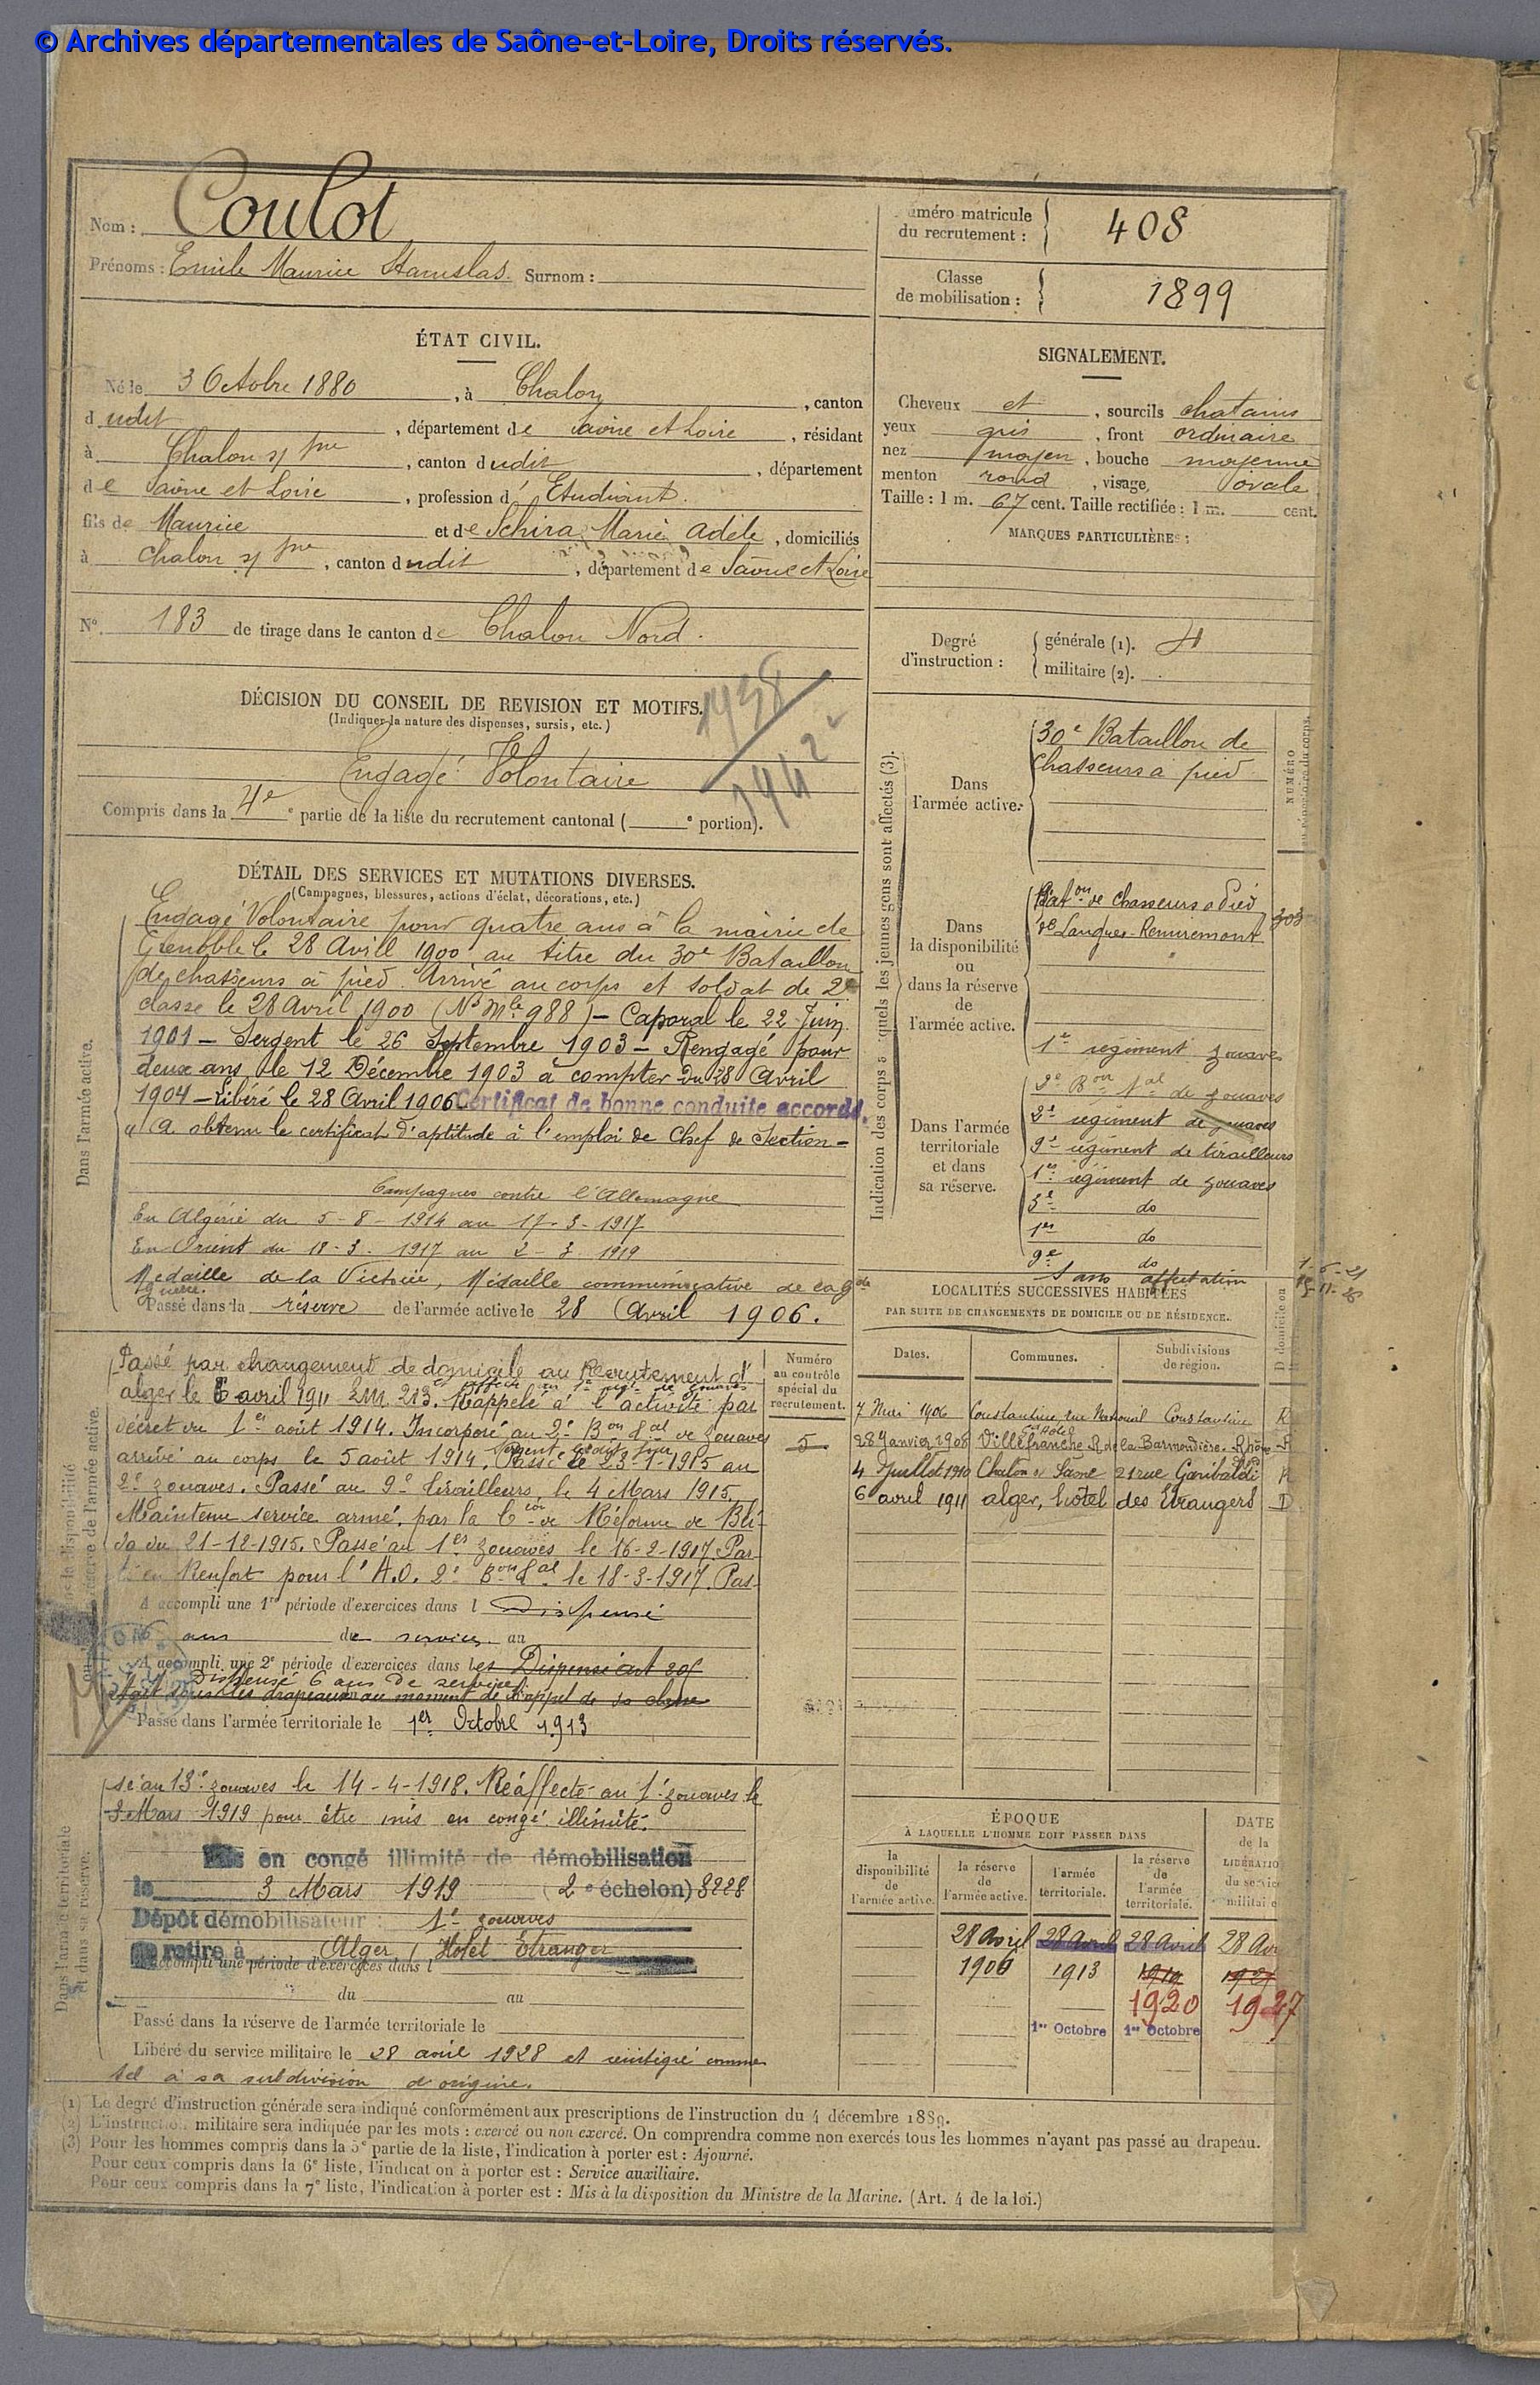 © Archives départementales de Saône-et-Loire, Droits réservés.
Nom : Coulot
Prénoms : Emile Maurice Stanislas. Surnom :
ÉTAT CIVIL.
Né le 3 Octobre 1880, à Chalon, canton
dudit, département de Saône et Loire, résidant
à Chalon s/ Sne, canton dudit, département
de Saône et Loire, profession d'Etudiant.
fils de Maurice et de Schira Marie Adèle, domiciliés
à Chalon s/ Sne, canton dudit, département de Saône et Loire
N° 183 de tirage dans le canton de Chalon Nord.
DÉCISION DU CONSEIL DE REVISION ET MOTIFS.
(Indiquer la nature des dispenses, sursis, etc.)
1938
Engagé Volontaire
Compris dans la 4e e partie de la liste du recrutement cantonal ( e portion).
DÉTAIL DES SERVICES ET MUTATIONS DIVERSES.
(Campagnes, blessures, actions d'éclat, décorations, etc.)
Dans l'armée active.
Engagé Volontaire pour quatre ans à la mairie de
Grenoble le 28 Avril 1900 au titre du 30e Bataillon
de chasseurs à pied. Arrivé au corps et soldat de 2e
classe le 28 Avril 1900 (No Mle 988) — Caporal le 22 Juin
1901 — Sergent le 26 Septembre 1903 — Rengagé pour
deux ans le 12 Décembre 1903 à compter du 28 Avril
1904 — Libéré le 28 Avril 1906 Certificat de bonne conduite accordé.
a obtenu le certificat d'aptitude à l'emploi de Chef de Section —
Campagnes contre l'Allemagne
En Algérie du 5-8-1914 au 17-3-1917
En Orient du 18-3-1917 au 2-3 1919
Médaille de la Victoire, Médaille commémorative de la gde
guerre.
Passé dans la réserve de l'armée active le 28 Avril 1906.
Passé par changement de domicile au Recrutement d'
alger le 6 avril 1911 Affecté au 1er régt de zouaves Rappelé à l'activité par
décret du 1er août 1914. Incorporé au 2e Bon tal de zouaves
arrivé au corps le 5 août 1914. Sergent Passé le 23-1-1915 au
2e zouaves. Passé au 9e tirailleurs le 4 Mars 1915.
Maintenu service armé par la Con de Réforme de Bli-
da du 21-12-1915. Passé au 1er zouaves le 16-2-1917. Par-
ti en Renfort pour l'A.O. 2e Bon tal le 18-3-1917. Pas-
A accompli une 1re période d'exercices dans l Dispensé
ans de services au
A accompli une 2e période d'exercices dans les Dispensé art 208
Dispensé 6 ans de services
était sous les drapeaux au moment de l'appel de sa classe
Passé dans l'armée territoriale le 1er Octobre 1913
Numéro
au contrôle
spécial du
recrutement.
5
Dans l'armée territoriale
et dans sa réserve.
sé au 13e zouaves le 14-4-1918. Réaffecté au 1er zouaves le
3 Mars 1919 pour être mis en congé illimité.
Mis en congé illimité de démobilisation
le 3 Mars 1919 (2e échelon) 8228
Dépôt démobilisateur : 1er zouaves
Se retire à Alger, Hôtel Etranger
A accompli une période d'exercices dans l
du au
Passé dans la réserve de l'armée territoriale le
Libéré du service militaire le 28 avril 1928 et réintégré comme
tel à sa subdivision d'origine.
Numéro matricule
du recrutement : 408
Classe
de mobilisation : 1899
SIGNALEMENT.
Cheveux et, sourcils chatains
yeux gris, front ordinaire
nez moyen, bouche moyenne
menton rond, visage ovale
Taille : 1 m. 67 cent. Taille rectifiée : 1 m. cent.
MARQUES PARTICULIÈRES :
Degré
d'instruction :
générale (1).
militaire (2).
Indication des corps auxquels les jeunes gens sont affectés (3).
NUMÉRO
Dans
l'armée active.
30e Bataillon de
Chasseurs à pied
Dans
la disponibilité
ou
dans la réserve
de
l'armée active.
Baton de Chasseurs à Pied
de Langres-Remiremont
303
1er régiment zouaves
Dans l'armée
territoriale
et dans
sa réserve.
2e Bon tal de zouaves
2e régiment de zouaves
9e régiment de tirailleurs
1er régiment de zouaves
3e do
1er do
9e do
Sans affectation
LOCALITÉS SUCCESSIVES HABITÉES
PAR SUITE DE CHANGEMENTS DE DOMICILE OU DE RÉSIDENCE.
Dates. Communes. Subdivisions
de région.
7 Mai 1906 Constantine, rue Nationale Constantine R
28 Janvier 1908 Villefranche R. de la Barmondière. Rhône R
4 Juillet 1910 Chalon s/ Saone 21 rue Garibaldi R
6 avril 1911 alger, hôtel des Etrangers D
ÉPOQUE
À LAQUELLE L'HOMME DOIT PASSER DANS
la
disponibilité
de
l'armée active.
la réserve
de
l'armée active.
l'armée
territoriale.
la réserve
de
l'armée
territoriale.
DATE
de la
LIBÉRATION
du service
militaire
28 Avril 28 Avril 28 Avril 28 Avr
1906 1913 1919
1920 1927
1er Octobre 1er Octobre
(1) Le degré d'instruction générale sera indiqué conformément aux prescriptions de l'instruction du 4 décembre 1889.
(2) L'instruction militaire sera indiquée par les mots : exercé ou non exercé. On comprendra comme non exercés tous les hommes n'ayant pas passé au drapeau.
(3) Pour les hommes compris dans la 5e partie de la liste, l'indication à porter est : Ajourné.
Pour ceux compris dans la 6e liste, l'indication à porter est : Service auxiliaire.
Pour ceux compris dans la 7e liste, l'indication à porter est : Mis à la disposition du Ministre de la Marine. (Art. 4 de la loi.)